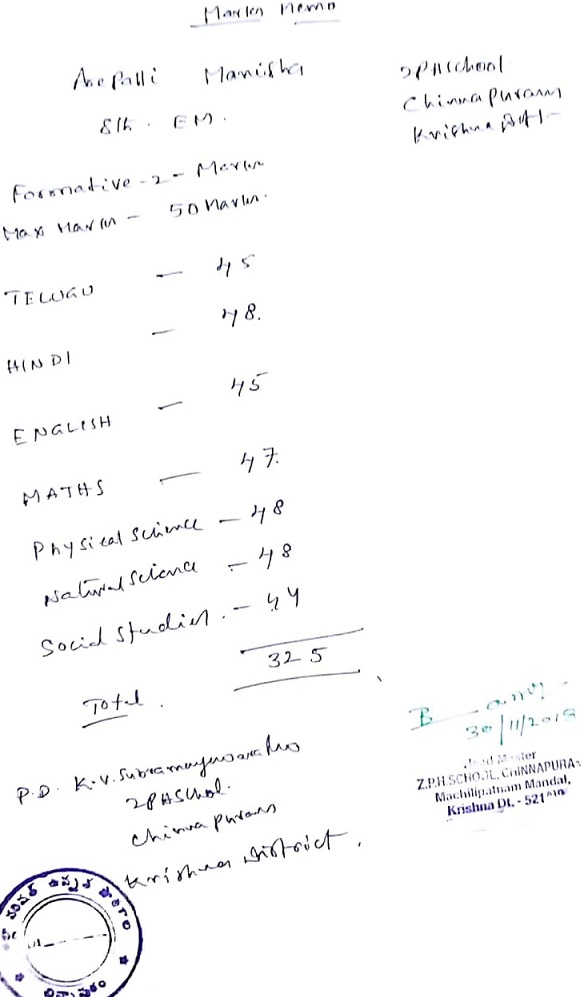 Marks Memo
Manisha
ZPHSchool
Chinnapuram
Krishna Dt -
8th . EM .
Formative - 2 - Marks
Max Marks - 50 Marks.
TELUGU - 45
HINDI - 48.
ENGLISH - 45
MATHS - 47.
Physical Science - 48
Natural Science - 48
Social Studies . - 44
325
Total .
B
30/11/2018
Head Master
Z.P.H.SCHOOL, CHINNAPURA
Machilipatnam Mandal,
Krishna Dt. - 521
P.D. K.V.
ZPHSchol.
Chinnapuram
Krishna District .
పరిషత్ ఉన్నత పాఠశాల
చిన్నాపురం